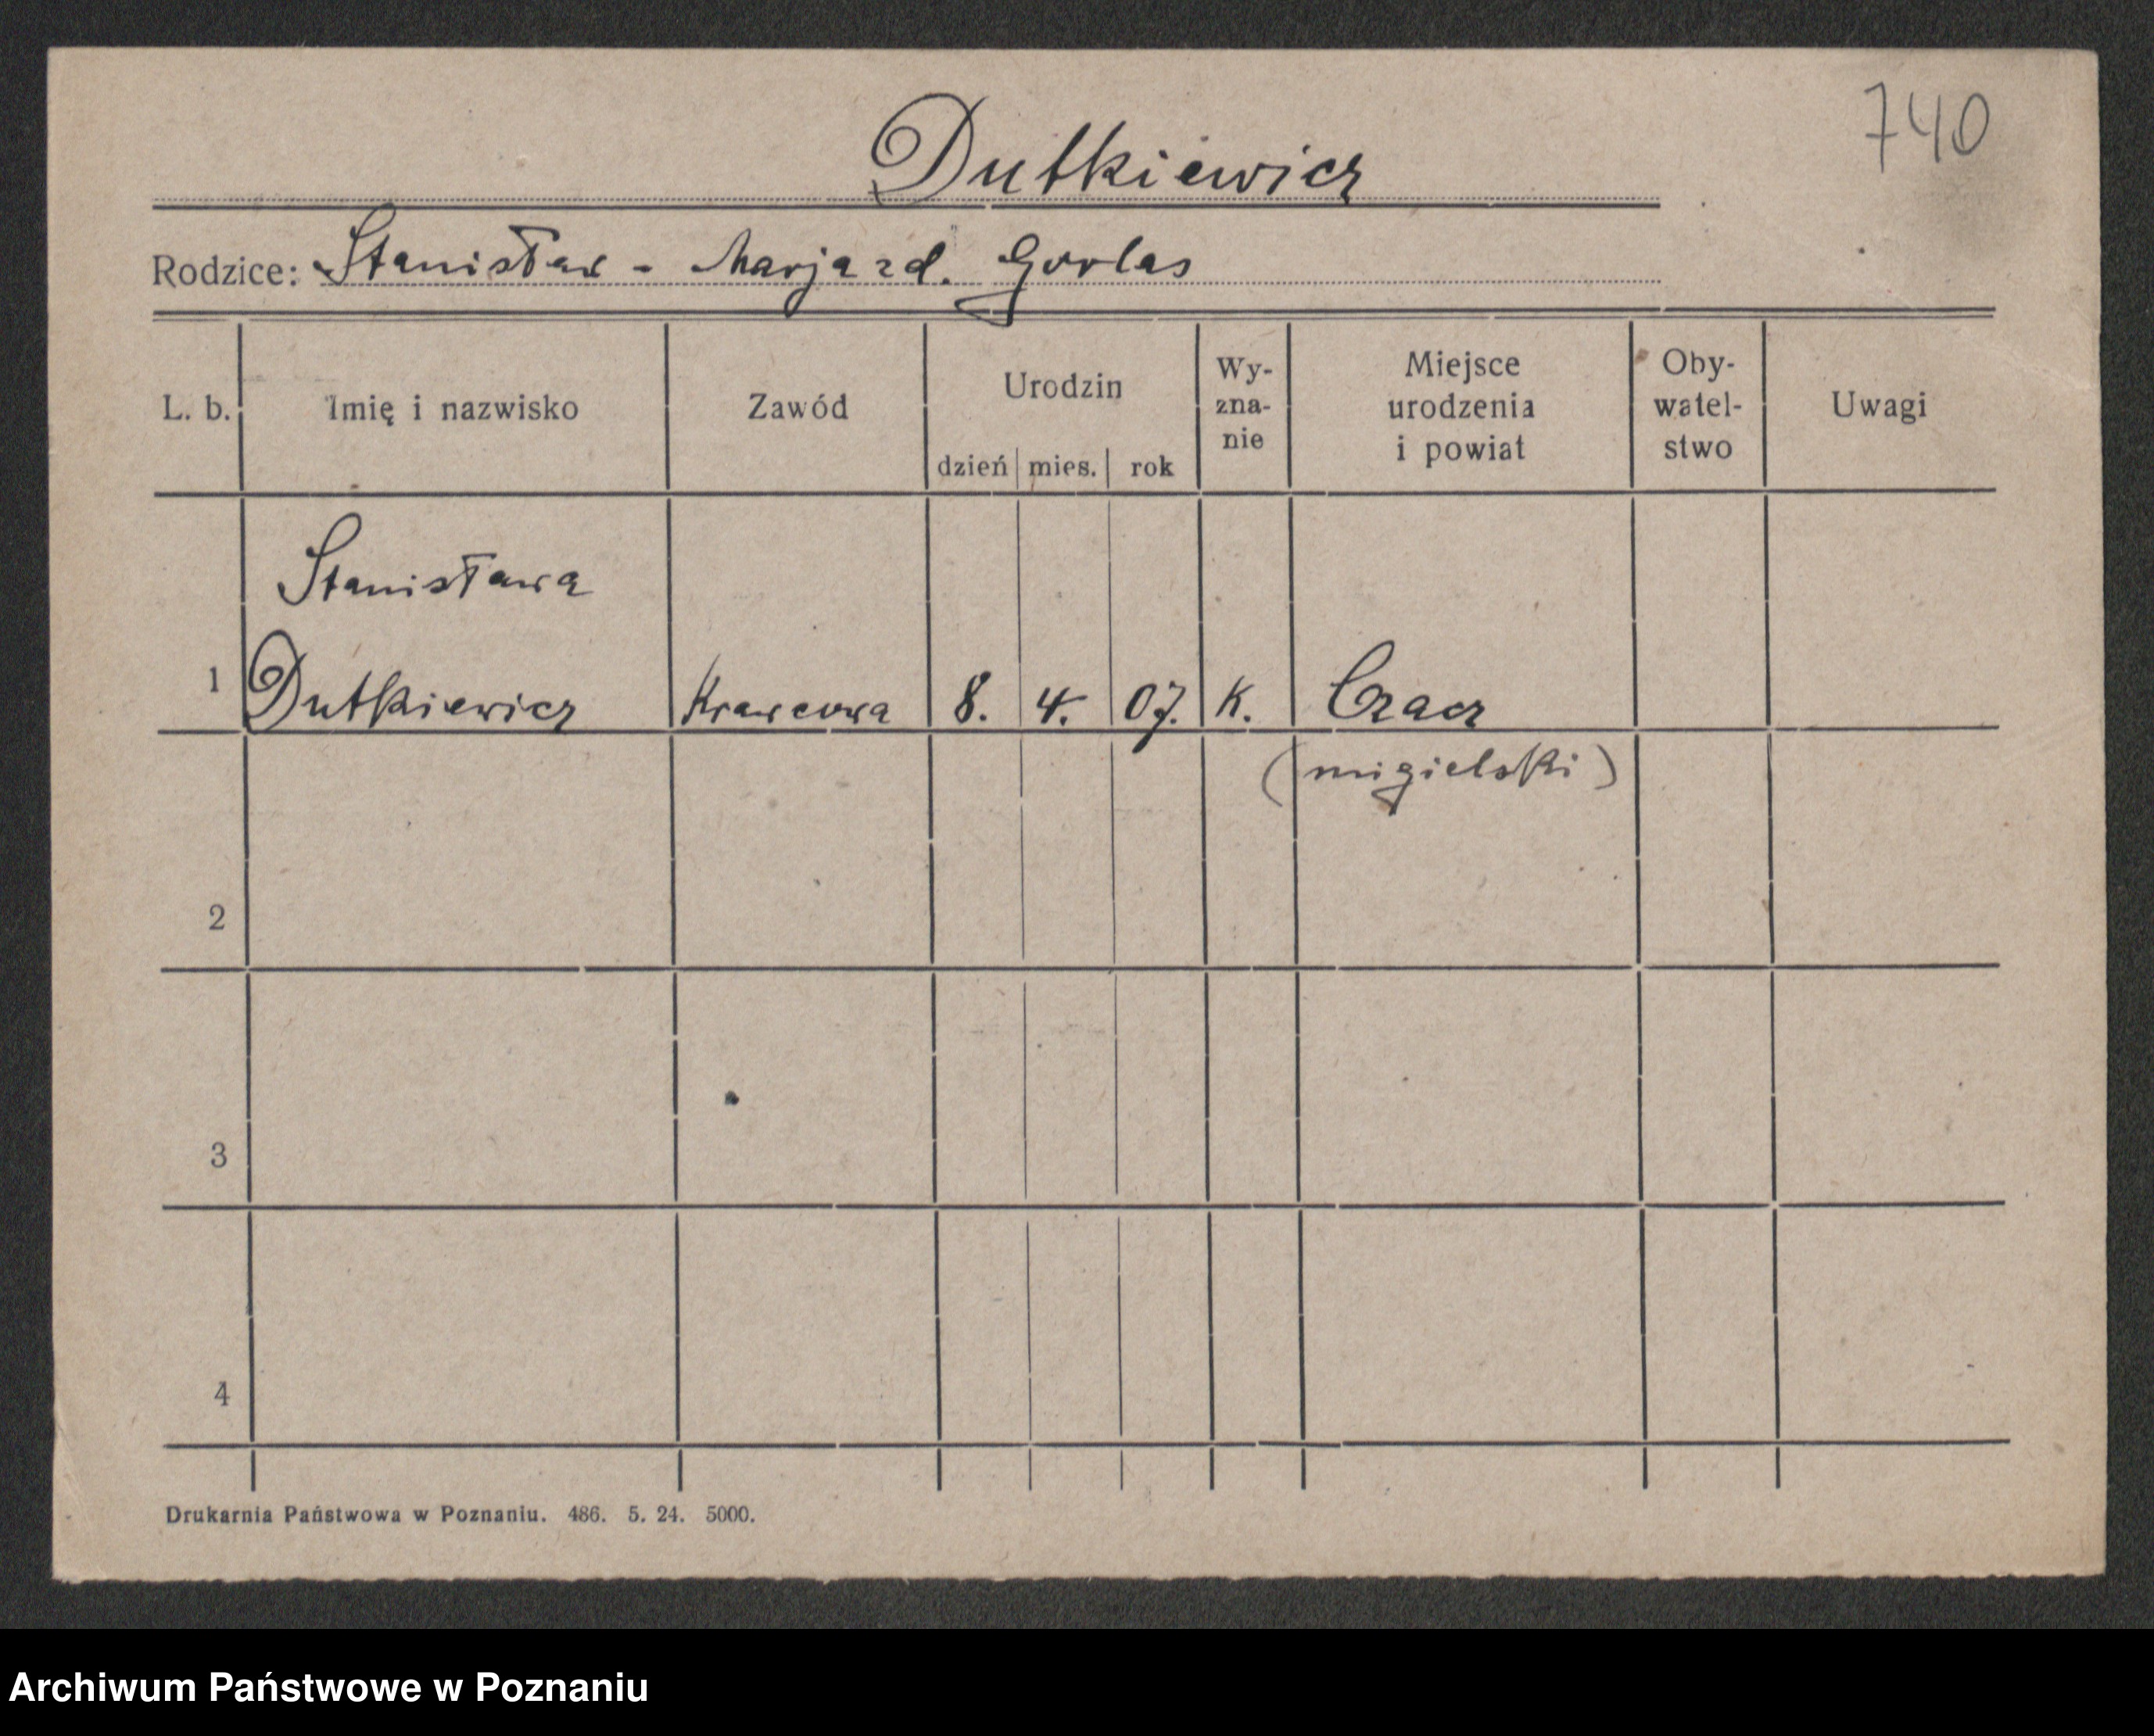 740
Dutkiewicz
Rodzice: Stanisław - Marja z d. Gorlas
L. b. Imię i nazwisko Zawód Urodzin dzień mies. rok Wy-zna-nie Miejsce urodzenia i powiat Oby-watel-stwo Uwagi
Stanisława
1 Dutkiewicz Krawcowa 8. 4. 07. K. Czacz
(migielski)
2
3
4
Drukarnia Państwowa w Poznaniu. 486. 5. 24. 5000.
Archiwum Państwowe w Poznaniu